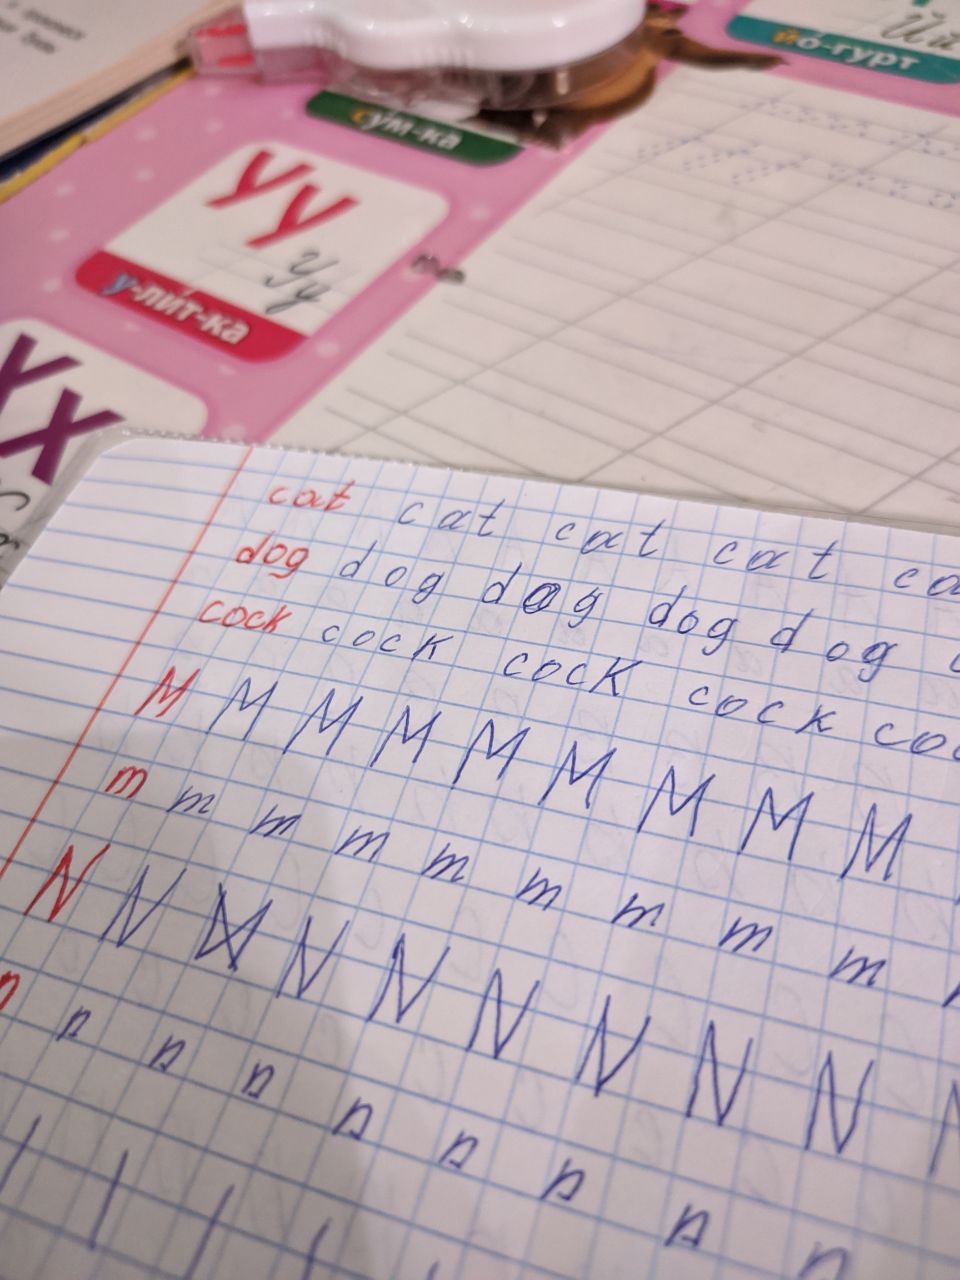 Йй
йо-гурт
сум-ка
Уу
Уу
у-лит-ка
Хх
cat cat cat cat
dog dog dog dog dog
cock cock cock cock
M M M M M M M M M
m m m m m m m m m
N N N N N N N N N N
n n n n n n n n n